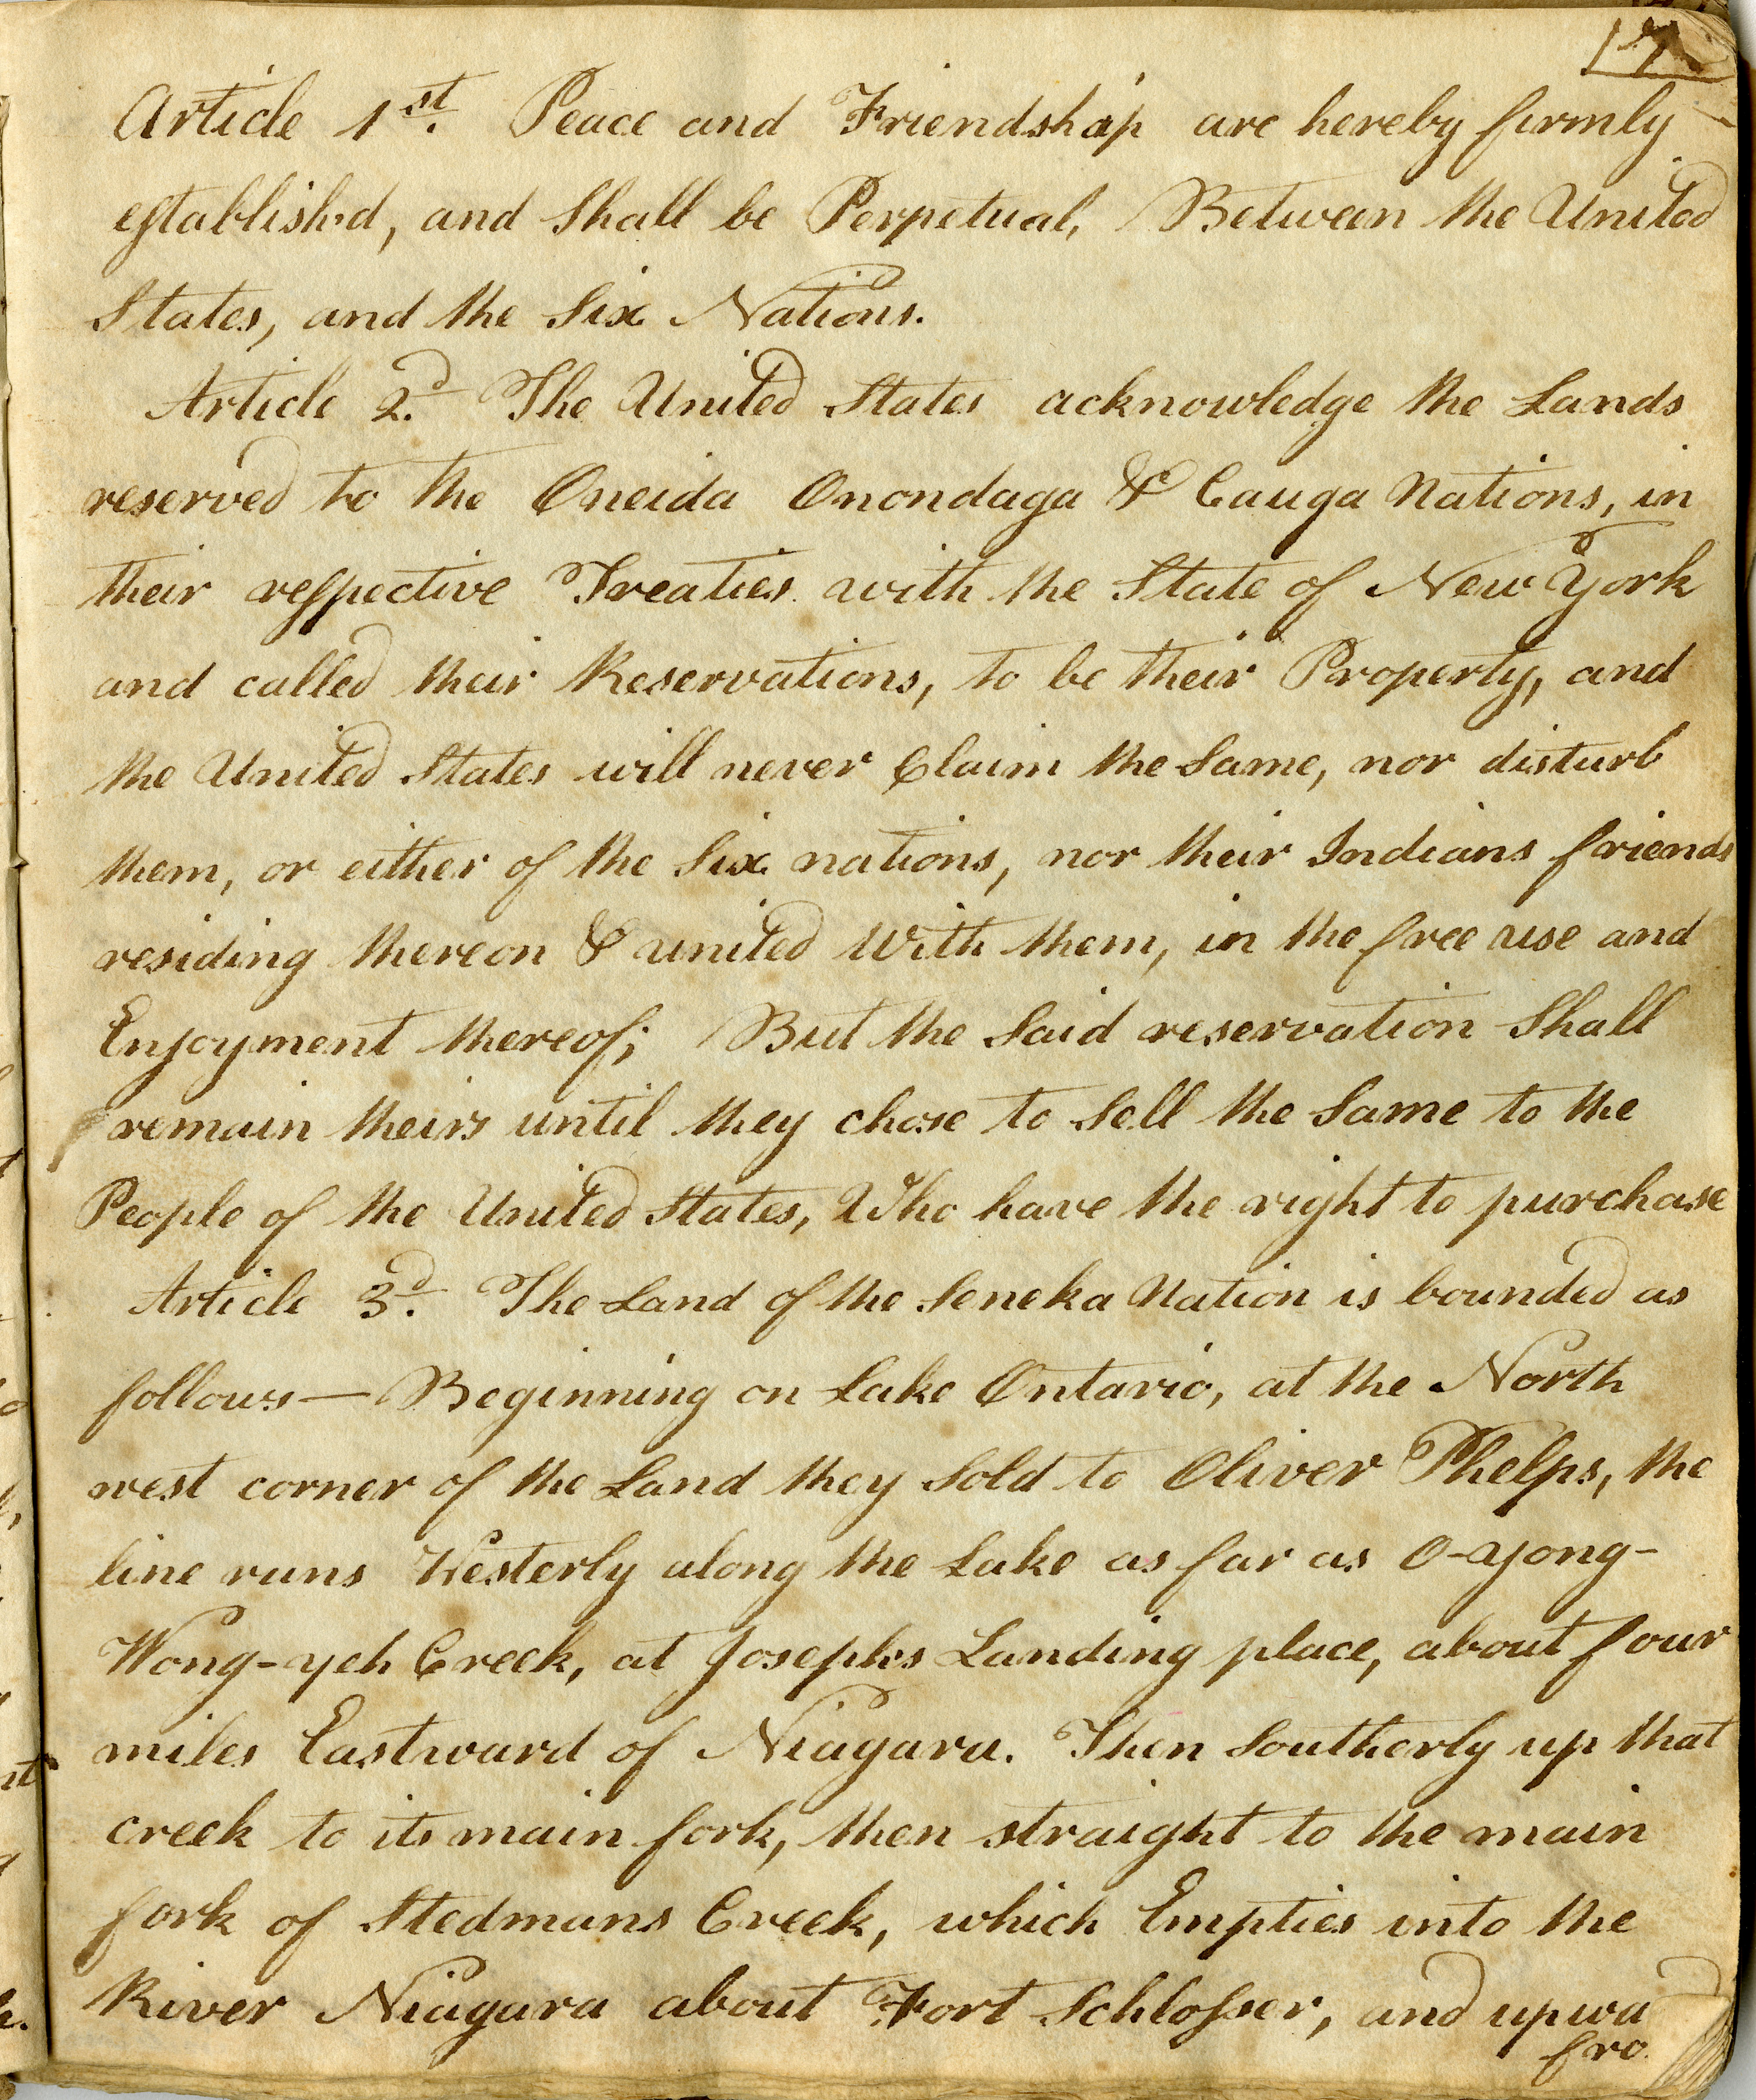 17
Article 1st. Peace and Friendship are hereby firmly
established, and Shall be Perpetual, Between the United
States, and the Six Nations.
Article 2d. The United States acknowledge the Lands
reserved to the Oneida Onondaga & Cauga Nations, in
their respective Treaties with the State of New York
and called their Reservations, to be their Property, and
the United States will never Claim the Same, nor disturb
them, or either of the Six nations, nor their Indians friends
residing thereon & united with them, in the free use and
Enjoyment thereof; But the Said reservation Shall
remain theirs until they chose to Sell the Same to the
People of the United States, Who have the right to purchase
Article 3d. The Land of the Seneka Nation is bounded as
follows— Beginning on Lake Ontario, at the North
west corner of the Land they Sold to Oliver Phelps, the
line runs Westerly along the Lake as far as O-yong-
Wong-yeh Creek, at Josephs Landing place, about four
miles Eastward of Niagara. Then Southerly up that
creek to its main fork, then straight to the main
fork of Stedmans Creek, which Empties into the
River Niagara about Fort Schlosser, and upwa
fro